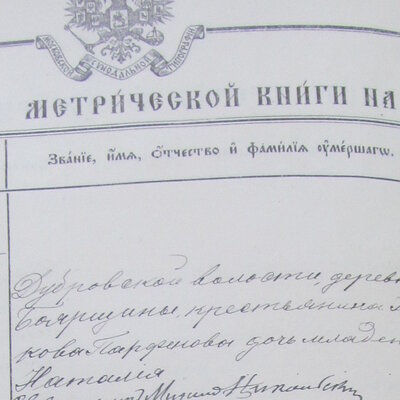 МОСКОВСКОЙ СѴНОДАЛЬНОЙ ТИПОГРАФІИ
МЕТРИ́ЧЕСКОЙ КНИ́ГИ НА
Зва́нїе, и҆́мѧ, ѻ҆́тчество и҆ фами́лїѧ ᲂу҆ме́ршагѡ.
Дубровской волости, дерев
Боярщины, крестьянина
кова Парфенова дочь младен
Наталия